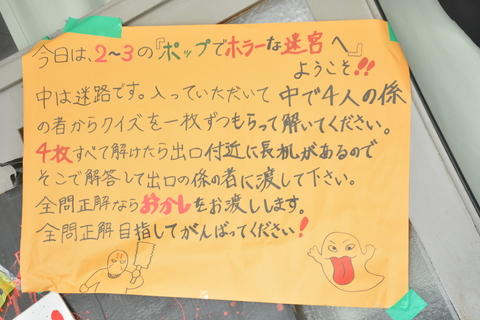 今日は、2〜3の『ポップでホラーな迷宮へ』
ようこそ!!
中は迷路です。入っていただいて中で4人の係
の者からクイズを一枚ずつもらって解いてください。
4枚すべて解けたら出口付近に長机があるので
そこで解答して出口の係の者に渡して下さい。
全問正解ならおかしをお渡しします。
全問正解目指してがんばってください!